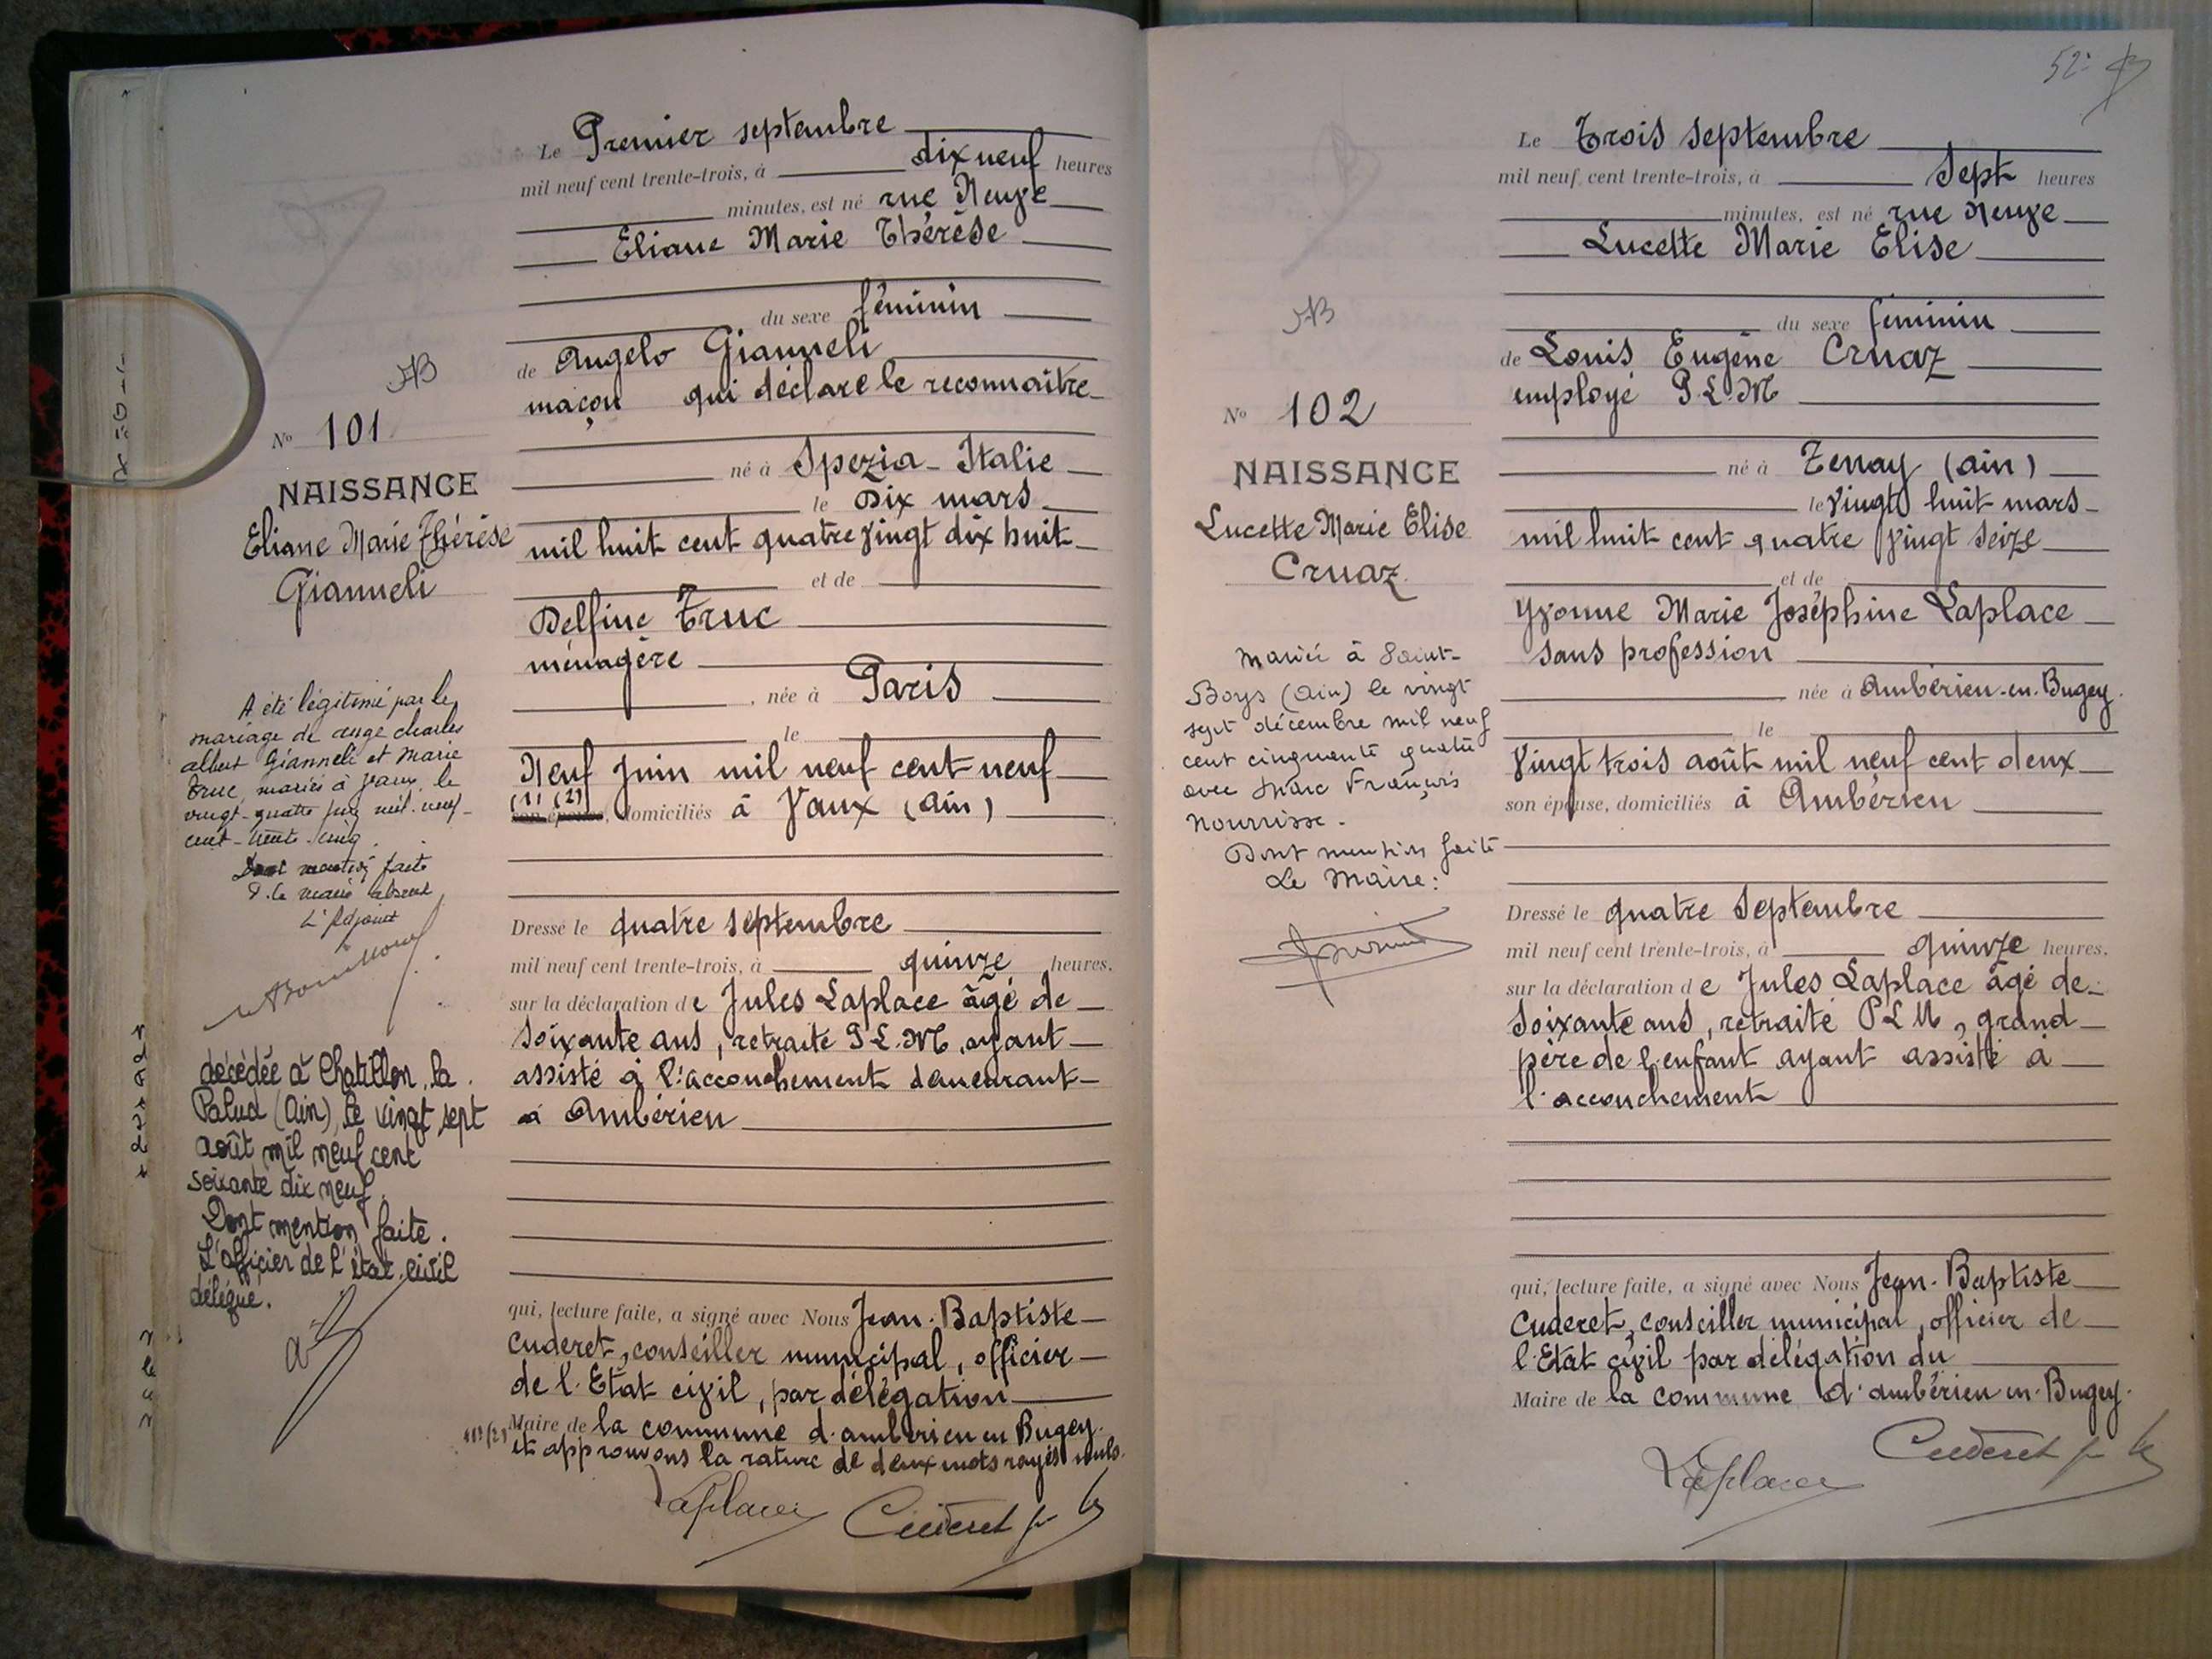 Le Premier septembre
mil neuf cent trente-trois, à dix neuf heures
minutes, est né rue Neuve
Eliane Marie Thérèse
du sexe féminin
de Angelo Gianneli
maçon qui déclare le reconnaître
né à Spezia - Italie
le Dix mars
mil huit cent quatre vingt dix huit
et de
Delfine Truc
ménagère
, née à Paris
le
Neuf Juin mil neuf cent neuf
(1) (2)
son épouse, domiciliés à Vaux (Ain)
Dressé le quatre septembre
mil neuf cent trente-trois, à quinze heures.
sur la déclaration de Jules Laplace âgé de
soixante ans, retraité P.L.M. ayant
assisté à l'accouchement demeurant
à Ambérieu
qui, lecture faite, a signé avec Nous Jean-Baptiste
Cuderet, conseiller municipal, officier
de l'Etat civil, par délégation
Maire de la commune d'ambérieu en Bugey.
(1)(2) et approuvons la rature de deux mots rayés nuls.
Laplace Cuderet
No 101
NAISSANCE
Eliane Marie Thérèse
Gianneli
A été légitimé par le
mariage de ange charles
albert Gianneli et Marie
Truc, mariés à Vaux, le
vingt-quatre juin mil-neuf-
cent-trente-cinq.
Dont mention faite
P. le maire absent
L'Adjoint
décédée à Chatillon la
Palud (Ain), le vingt sept
août mil neuf cent
soixante dix neuf.
Dont mention faite.
L'officier de l'état civil
délégué.
52
Le Trois septembre
mil neuf cent trente-trois, à Sept heures
minutes, est né rue Neuve
Lucette Marie Elise
du sexe féminin
de Louis Eugène Cruaz
employé P.L.M
né à Tenay (ain)
le Vingt huit mars
mil huit cent quatre vingt seize
et de
Yvonne Marie Joséphine Laplace
sans profession
née à Ambérieu-en-Bugey.
le
Vingt trois août mil neuf cent deux
son épouse, domiciliés à Ambérieu
Dressé le quatre Septembre
mil neuf cent trente-trois, à quinze heures.
sur la déclaration de Jules Laplace âgé de
soixante ans, retraité PLM, grand
père de l'enfant ayant assisté à
l'accouchement
qui, lecture faite, a signé avec Nous Jean-Baptiste
Cuderet, conseiller municipal, officier de
l'Etat civil par délégation du
Maire de la commune d'ambérieu-en-Bugey.
Laplace Cuderet
No 102
NAISSANCE
Lucette Marie Elise
Cruaz
Mariée à Saint-
Boys (Ain) le vingt
sept décembre mil neuf
cent cinquante quatre
avec Marc François
Nourrisse.
Dont mention faite
Le Maire: